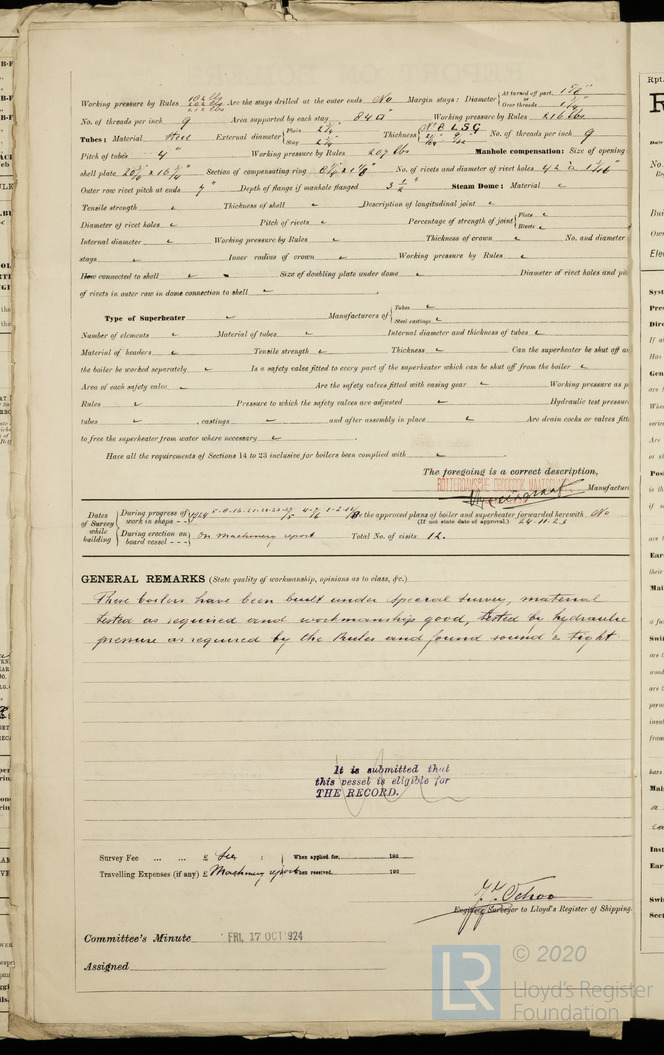 Working pressure by Rules 212 lbs Are the stays drilled at the outer ends No Margin stays: Diameter { At turned off part, or Over threads
No. of threads per inch 9 Area supported by each stay Working pressure by Rules 216 lbs
Tubes: Material Steel External diameter { Plain 2 1/4" Stay 2 1/4" Thickness { No. of threads per inch 9
Pitch of tubes 4" Working pressure by Rules 207 lbs Manhole compensation: Size of opening
shell plate Section of compensating ring No. of rivets and diameter of rivet holes 42 @ 1 1/16"
Outer row rivet pitch at ends 4" Depth of flange if manhole flanged 3 1/2" Steam Dome: Material
Tensile strength Thickness of shell Description of longitudinal joint
Diameter of rivet holes Pitch of rivets Percentage of strength of joint { Plate Rivets
Internal diameter Working pressure by Rules Thickness of crown No. and diameter
stays Inner radius of crown Working pressure by Rules
How connected to shell Size of doubling plate under dome Diameter of rivet holes and
of rivets in outer row in dome connection to shell
Type of Superheater Manufacturers of { Tubes Steel castings
Number of elements Material of tubes Internal diameter and thickness of tubes
Material of headers Tensile strength Thickness Can the superheater be shut off
the boiler be worked separately Is a safety valve fitted to every part of the superheater which can be shut off from the boiler
Area of each safety valve Are the safety valves fitted with easing gear Working pressure as
Rules Pressure to which the safety valves are adjusted Hydraulic test pressure
tubes , castings and after assembly in place Are drain cocks or valves
to free the superheater from water where necessary
Have all the requirements of Sections 14 to 23 inclusive for boilers been complied with
The foregoing is a correct description,
ROTTERDAMSCHE DROOGDOK MAATSCHAPPIJ
Manufacture
Dates of Survey while building { During progress of work in shops - - 1924 Are the approved plans of boiler and superheater forwarded herewith No
(If not state date of approval.) 24-11-23
During erection on board vessel - - - On machinery report Total No. of visits 12.
GENERAL REMARKS (State quality of workmanship, opinions as to class, &c.)
These boilers have been built under special survey, material
tested as required and workmanship good, tested by hydraulic
pressure as required by the Rules and found sound & tight
It is submitted that
this vessel is eligible for
THE RECORD.
Survey Fee ... ... £ See : When applied for, 192
Travelling Expenses (if any) £ Machinery report When received, 192
Engineer Surveyor to Lloyd's Register of Shipping.
Committee's Minute FRI. 17 OCT 1924
Assigned
© 2020
LR
Lloyd's Register
Foundation